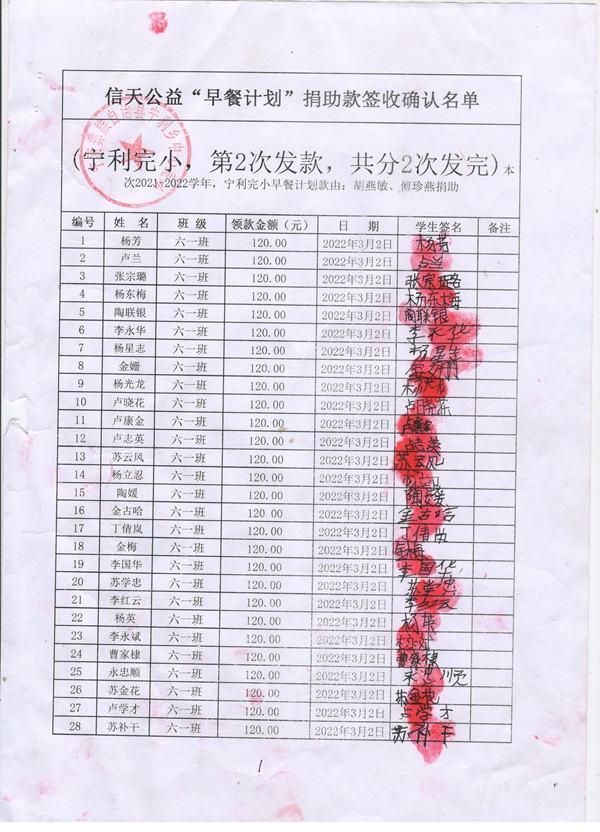 信天公益“早餐计划”捐助款签收确认名单
(宁利完小，第2次发款，共分2次发完)本
次2021-2022学年，宁利完小早餐计划款由：胡燕敏、傅珍燕捐助
编号 姓 名 班 级 领款金额（元） 日 期 学生签名 备注
1 杨芳 六一班 120.00 2022年3月2日 杨芳
2 卢兰 六一班 120.00 2022年3月2日 卢兰
3 张宗璐 六一班 120.00 2022年3月2日 张宗璐
4 杨东梅 六一班 120.00 2022年3月2日 杨东梅
5 陶联银 六一班 120.00 2022年3月2日 陶联银
6 李永华 六一班 120.00 2022年3月2日 李永华
7 杨星志 六一班 120.00 2022年3月2日 杨星志
8 金姗 六一班 120.00 2022年3月2日 金姗
9 杨光龙 六一班 120.00 2022年3月2日 杨光龙
10 卢晓花 六一班 120.00 2022年3月2日 卢晓花
11 卢康金 六一班 120.00 2022年3月2日 卢康金
12 卢志英 六一班 120.00 2022年3月2日 卢志英
13 苏云风 六一班 120.00 2022年3月2日 苏云风
14 杨立忍 六一班 120.00 2022年3月2日
15 陶媛 六一班 120.00 2022年3月2日 陶媛
16 金古哈 六一班 120.00 2022年3月2日 金古哈
17 丁倩岚 六一班 120.00 2022年3月2日 丁倩岚
18 金梅 六一班 120.00 2022年3月2日 金梅
19 李国华 六一班 120.00 2022年3月2日 李国华
20 苏学忠 六一班 120.00 2022年3月2日 苏学忠
21 李红云 六一班 120.00 2022年3月2日 李红云
22 杨英 六一班 120.00 2022年3月2日 杨英
23 李永斌 六一班 120.00 2022年3月2日
24 曹家棣 六一班 120.00 2022年3月2日 曹家棣
25 永忠顺 六一班 120.00 2022年3月2日 永忠顺
26 苏金花 六一班 120.00 2022年3月2日 苏金花
27 卢学才 六一班 120.00 2022年3月2日 卢学才
28 苏补干 六一班 120.00 2022年3月2日 苏补干
1